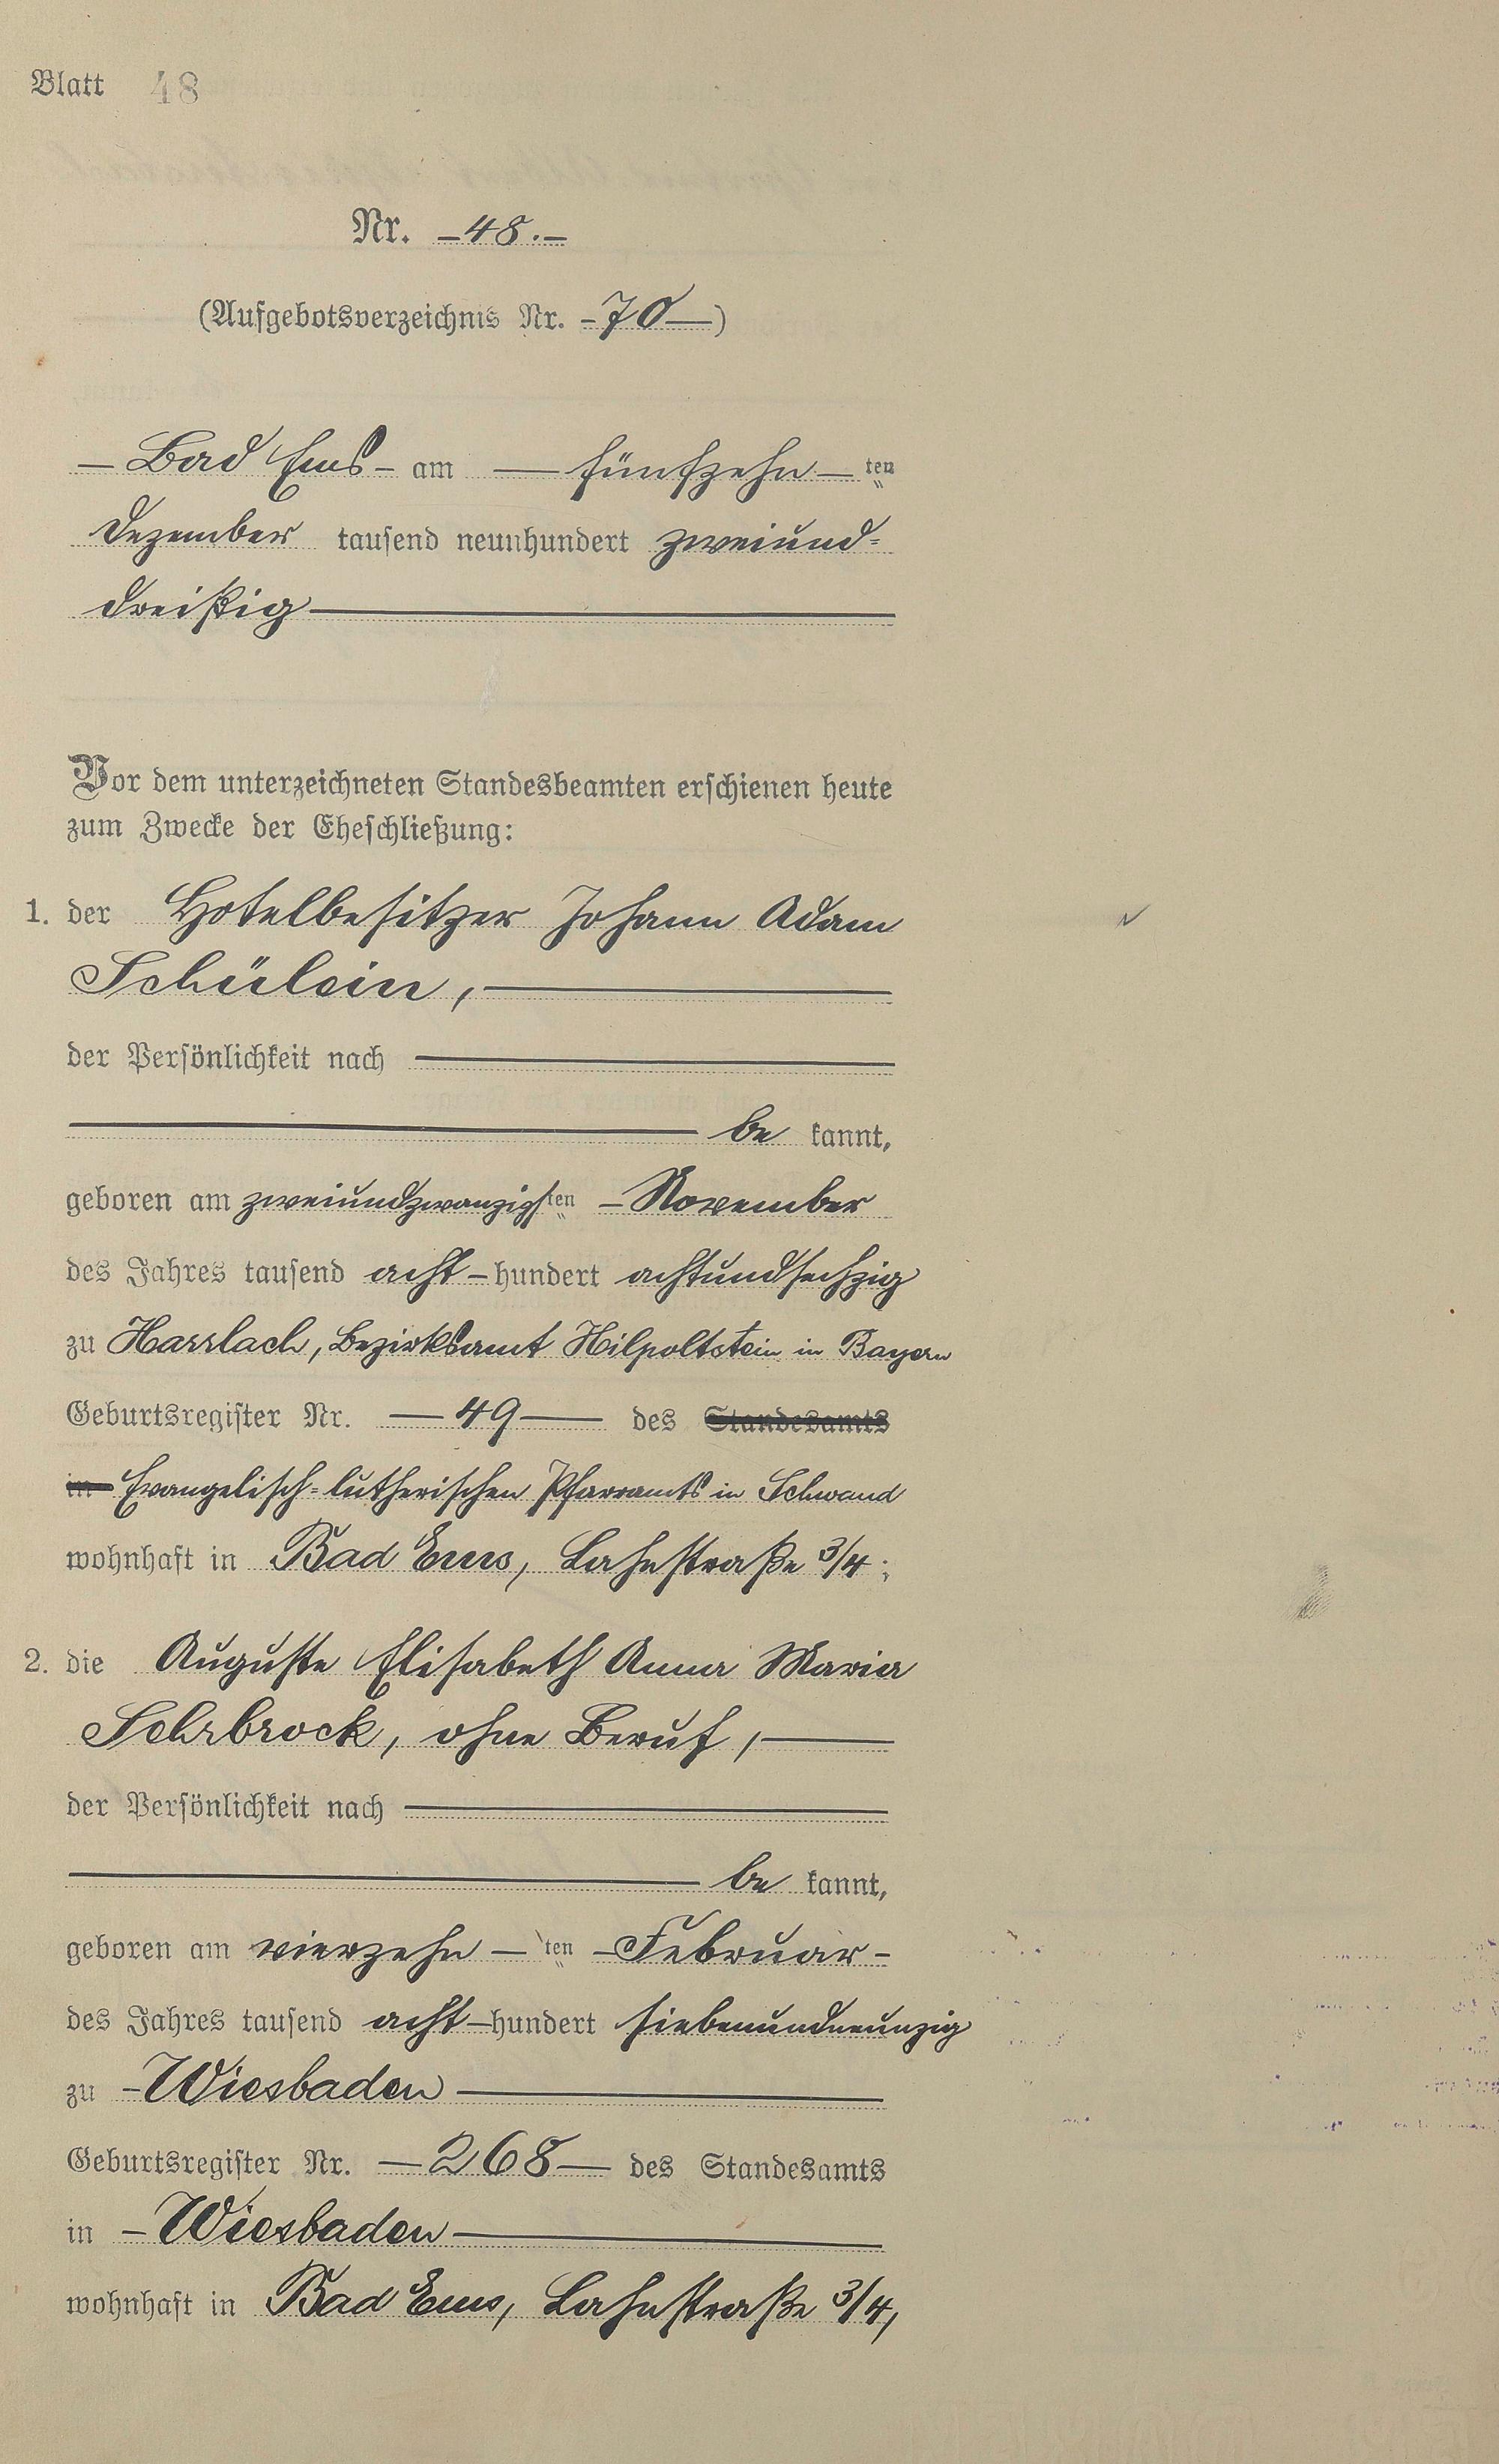 Blatt 48
Nr. – 48. –
(Aufgebotsverzeichnis Nr. – 70 —)
– Bad Ems – am — fünfzehn — ten
Dezember tausend neunhundert zweiund=
dreißig
Vor dem unterzeichneten Standesbeamten erschienen heute
zum Zwecke der Eheschließung:
1. der Hotelbesitzer Johann Adam
Schülein,
der Persönlichkeit nach
be kannt,
geboren am zweiundzwanzigsten – November
des Jahres tausend acht – hundert achtundsechzig
zu Harrlach, Bezirksamt Hilpoltstein in Bayern
Geburtsregister Nr. — 49 — des Standesamts
in Evangelisch=lutherischen Pfarramts in Schwand
wohnhaft in Bad Ems, Lahnstraße 3/4;
2. die Auguste Elisabeth Anna Maria
Sehrbrock, ohne Beruf,
der Persönlichkeit nach
be kannt,
geboren am vierzehn — ten – Februar –
des Jahres tausend acht – hundert siebenundneunzig
zu – Wiesbaden
Geburtsregister Nr. — 268 — des Standesamts
in – Wiesbaden
wohnhaft in Bad Ems, Lahnstraße 3/4,